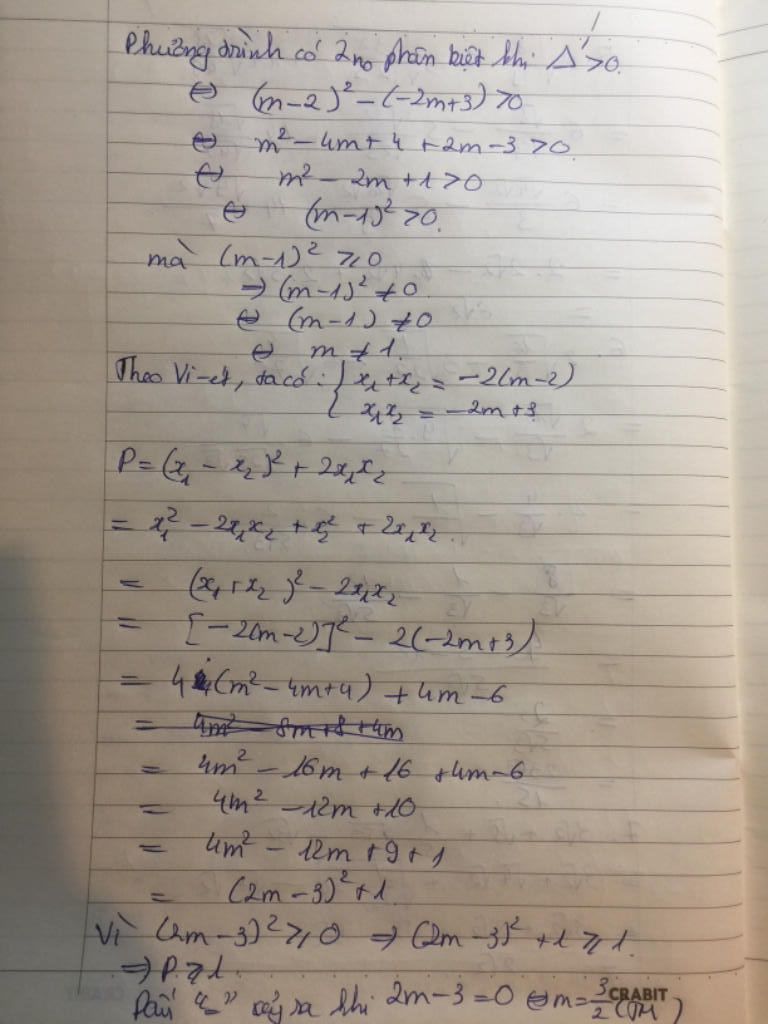 Phương trình có 2 no phân biệt khi Δ' > 0.
⇔ (m-2)² - (-2m+3) > 0
⇔ m² - 4m + 4 + 2m - 3 > 0
⇔ m² - 2m + 1 > 0
⇔ (m-1)² > 0.
mà (m-1)² ⩾ 0
⇒ (m-1)² ≠ 0
⇔ (m-1) ≠ 0
⇔ m ≠ 1.
Theo Vi-ét, ta có: { x₁ + x₂ = -2(m-2)
x₁x₂ = -2m+3
P = (x₁ - x₂)² + 2x₁x₂
= x₁² - 2x₁x₂ + x₂² + 2x₁x₂.
= (x₁+x₂)² - 2x₁x₂
= [-2(m-2)]² - 2(-2m+3)
= 4(m² - 4m+4) + 4m - 6
= 4m² - 8m + 8 + 4m
= 4m² - 16m + 16 + 4m - 6
= 4m² - 12m + 10
= 4m² - 12m + 9 + 1
= (2m-3)² + 1.
Vì (2m-3)² ⩾ 0 ⇒ (2m-3)² + 1 ⩾ 1.
⇒ P ⩾ 1
Dấu "=" xảy ra khi 2m-3 = 0 ⇔ m = 3/2 (TM)
CRABIT